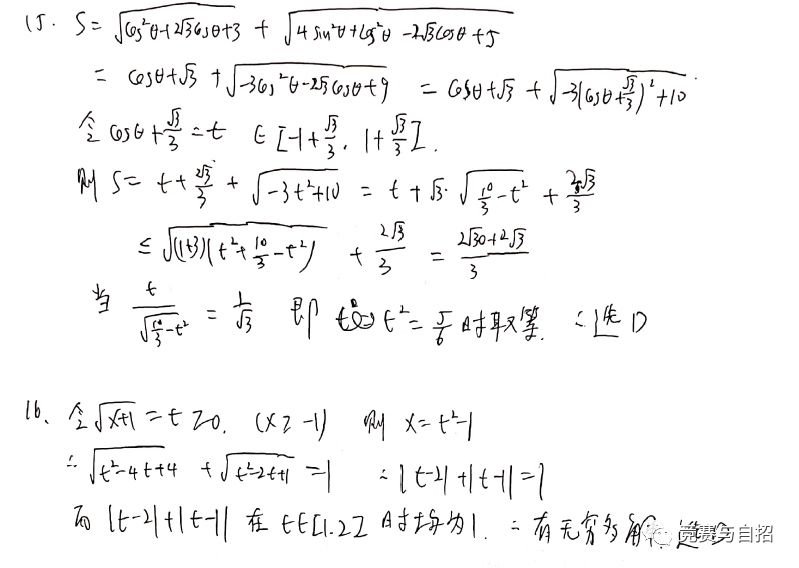 15. S= √(cos²θ+2√3cosθ+3) + √(4sin²θ+cos²θ-2√3cosθ+5)
= cosθ+√3 + √(-3cos²θ-2√3cosθ+9) = cosθ+√3 + √(-3(cosθ+√3/3)²+10)
令 cosθ+√3/3=t ∈[-1+√3/3, 1+√3/3].
则 S= t+2√3/3 + √(-3t²+10) = t+√3·√(10/3-t²) + 2√3/3
≤ √((1+3)(t²+10/3-t²)) + 2√3/3 = (2√30+2√3)/3
当 t/√(10/3-t²) = 1/√3 即 t²=5/6 时取等. ∴选D
16、令√(x+1)=t≥0. (x≥-1) 则 x=t²-1
∴ √(t²-4t+4) + √(t²-2t+1) =1 ∴|t-2|+|t-1|=1
而 |t-2|+|t-1| 在 t∈[1.2] 时均为1. ∴有无穷多解 选D
竞赛与自招